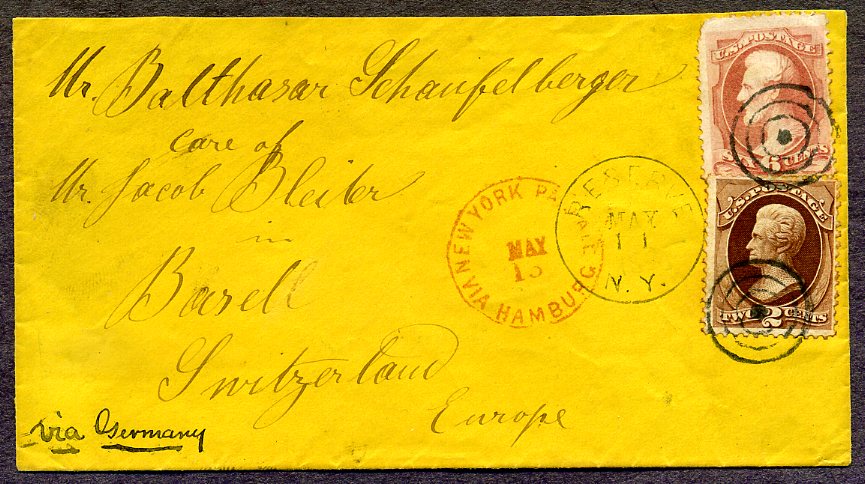 Mr. Balthasar Schaufelberger
care of
Mr. Jacob Bleiler
in
Basell
Switzerland
Europe
via Germany
NEW YORK PAID ALL
VIA HAMBURG
MAY
13
RESERVE
MAY
11
N.Y.
U.S. POSTAGE
6 CENTS
U.S. POSTAGE
TWO 2 CENTS